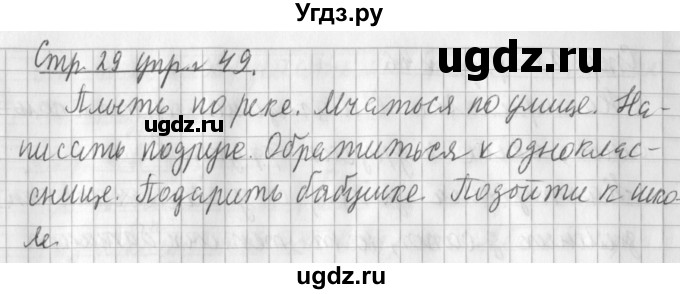 Угдз.ру
Стр. 29 упр. 49.
ugdz.ru
Плыть по реке. Мчаться по улице. На-
ugdz.ru
писать подруге. Обратиться к однокла-
снице. Подарить бабушке. Подойти к шко-
ле.
ugdz.ru